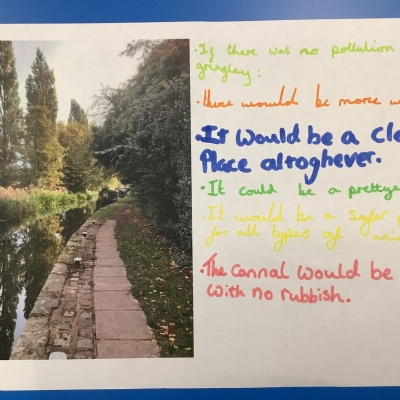 · If there was no pollution
gringley:
· there would be more
· It Would be a
Place altoghever.
· It could be a prettye
· It would be a safer
for all types of
· The cannal would be
with no rubbish.